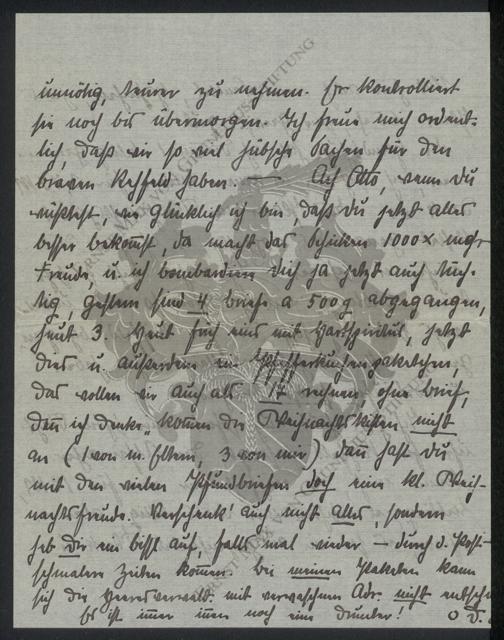 unnötig, teurer zu nehmen. Er kontrolliert
sie noch bis übermorgen. Ich freue mich ordent-
lich, daß wir so viel hübsche Sachen für den
braven Rehfeld haben. — Ach Otto, wenn Du
wüßtest, wie glücklich ich bin, daß Du jetzt alles
besser bekommst, da macht das Schicken 1000x mehr
Freude, u. ich bombardiere Dich ja jetzt auch tüch-
tig, gestern sind 4 Briefe a 500 g abgegangen,
heut 3. Heut früh eins mit Hartspiritus, jetzt
dies u. außerdem ein Pfefferkuchenpaketchen,
das wollen wir auch als rechnen, ohne Brief,
denn ich denke, kommen die Weihnachtskisten nicht
an (1 von m. Eltern, 3 von mir) dann hast Du
mit den vielen Pfundbriefen doch eine kl. Weih-
nachtsfreude. Verschenk' auch nicht alles, sondern
heb Dir ein bissl auf, falls mal wieder — durch d. Post-
schmalere Zeiten kommen. Bei meinen Paketen kann
sich die Heeresverwalt. mit verwaschenen Adr. nicht entsch
Es ist immer innen noch eine drunter! O D.